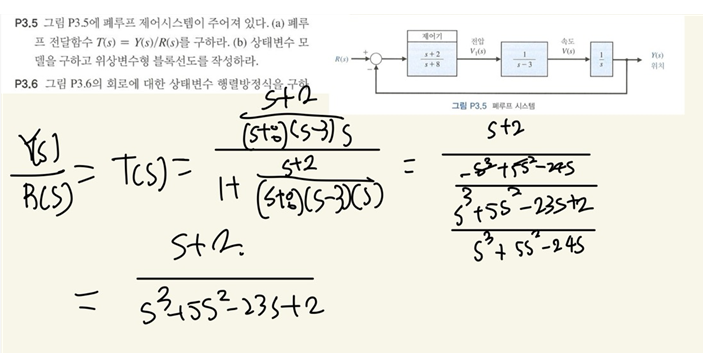 P3.5 그림 P3.5에 폐루프 제어시스템이 주어져 있다. (a) 폐루
프 전달함수 T(s) = Y(s)/R(s)를 구하라. (b) 상태변수 모
델을 구하고 위상변수형 블록선도를 작성하라.
P3.6 그림 P3.6의 회로에 대한 상태변수 행렬방정식을 구하
제어기
R(s)
+
−
s+2
s+8
전압
V₁(s)
1
s−3
속도
V(s)
1
s
Y(s)
위치
그림 P3.5 폐루프 시스템
Y(s)
R(s)
= T(s) =
s+2
(s+8)(s-3)s
1+
s+2
(s+8)(s-3)(s)
=
s+2
s³+5s²-24s
s³+5s²-23s+2
s³+5s²-24s
=
s+2
s³+5s²-23s+2